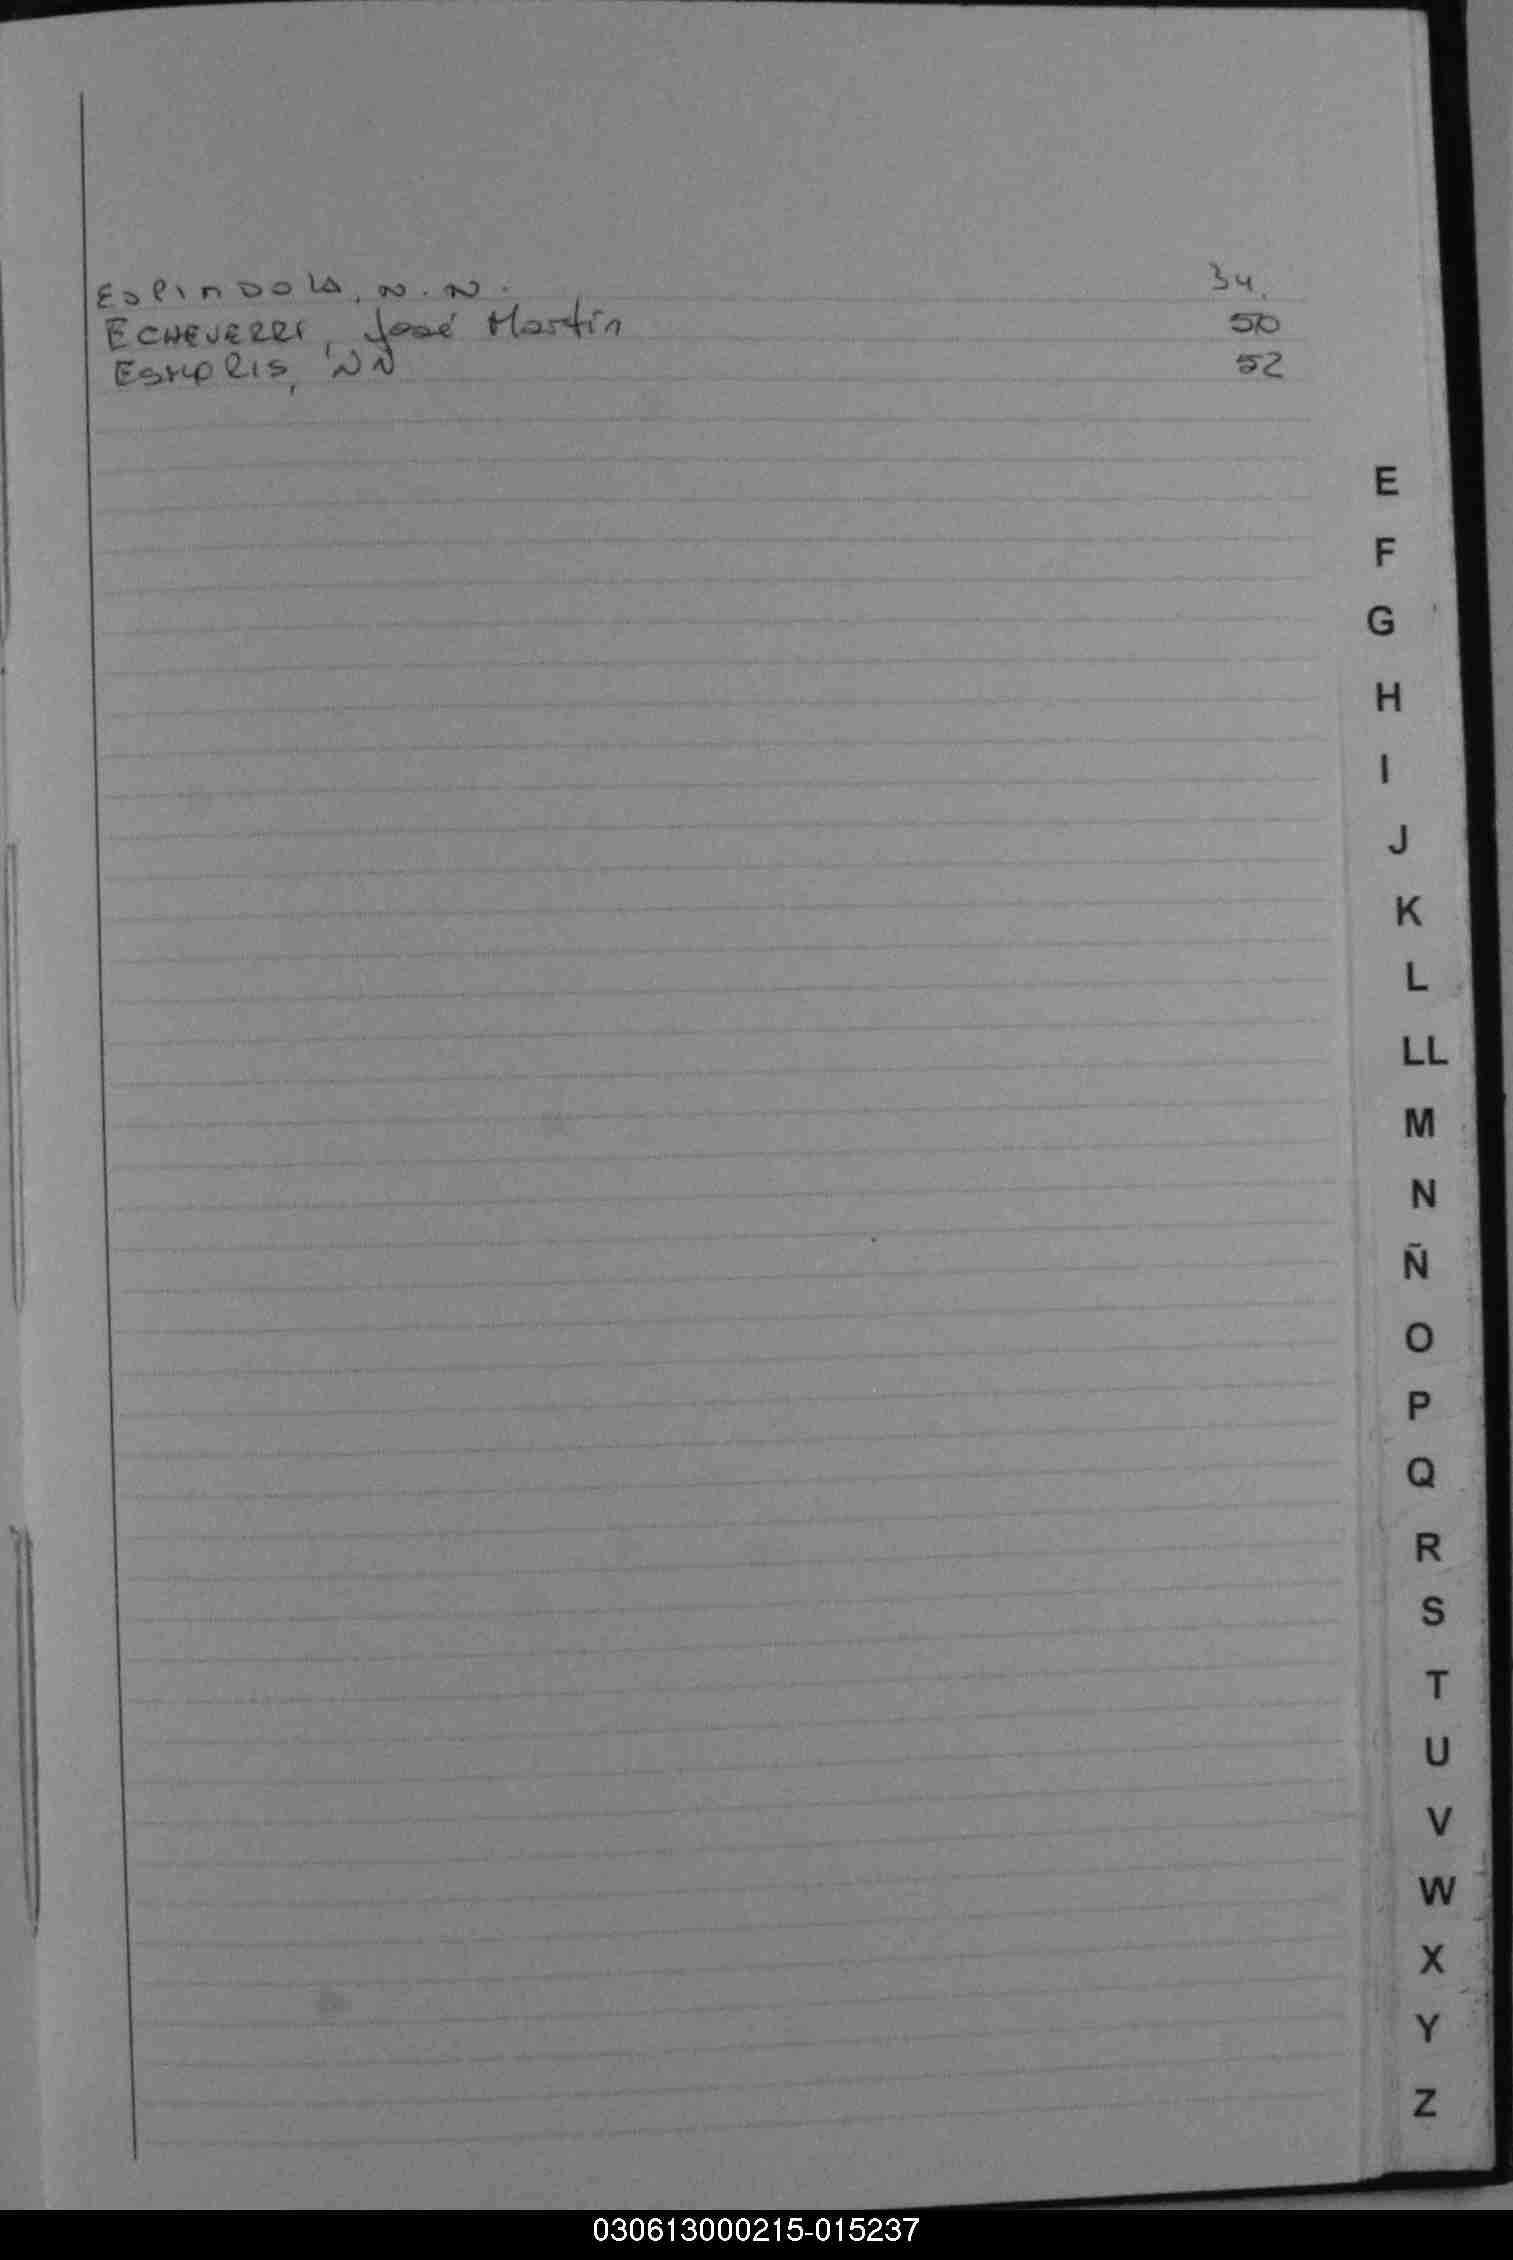 Espindola, N.N. 34.
ECHEVERRI, José Martín 50
NN 52
E
F
G
H
I
J
K
L
LL
M
N
Ñ
O
P
Q
R
S
T
U
V
W
X
Y
Z
030613000215-015237